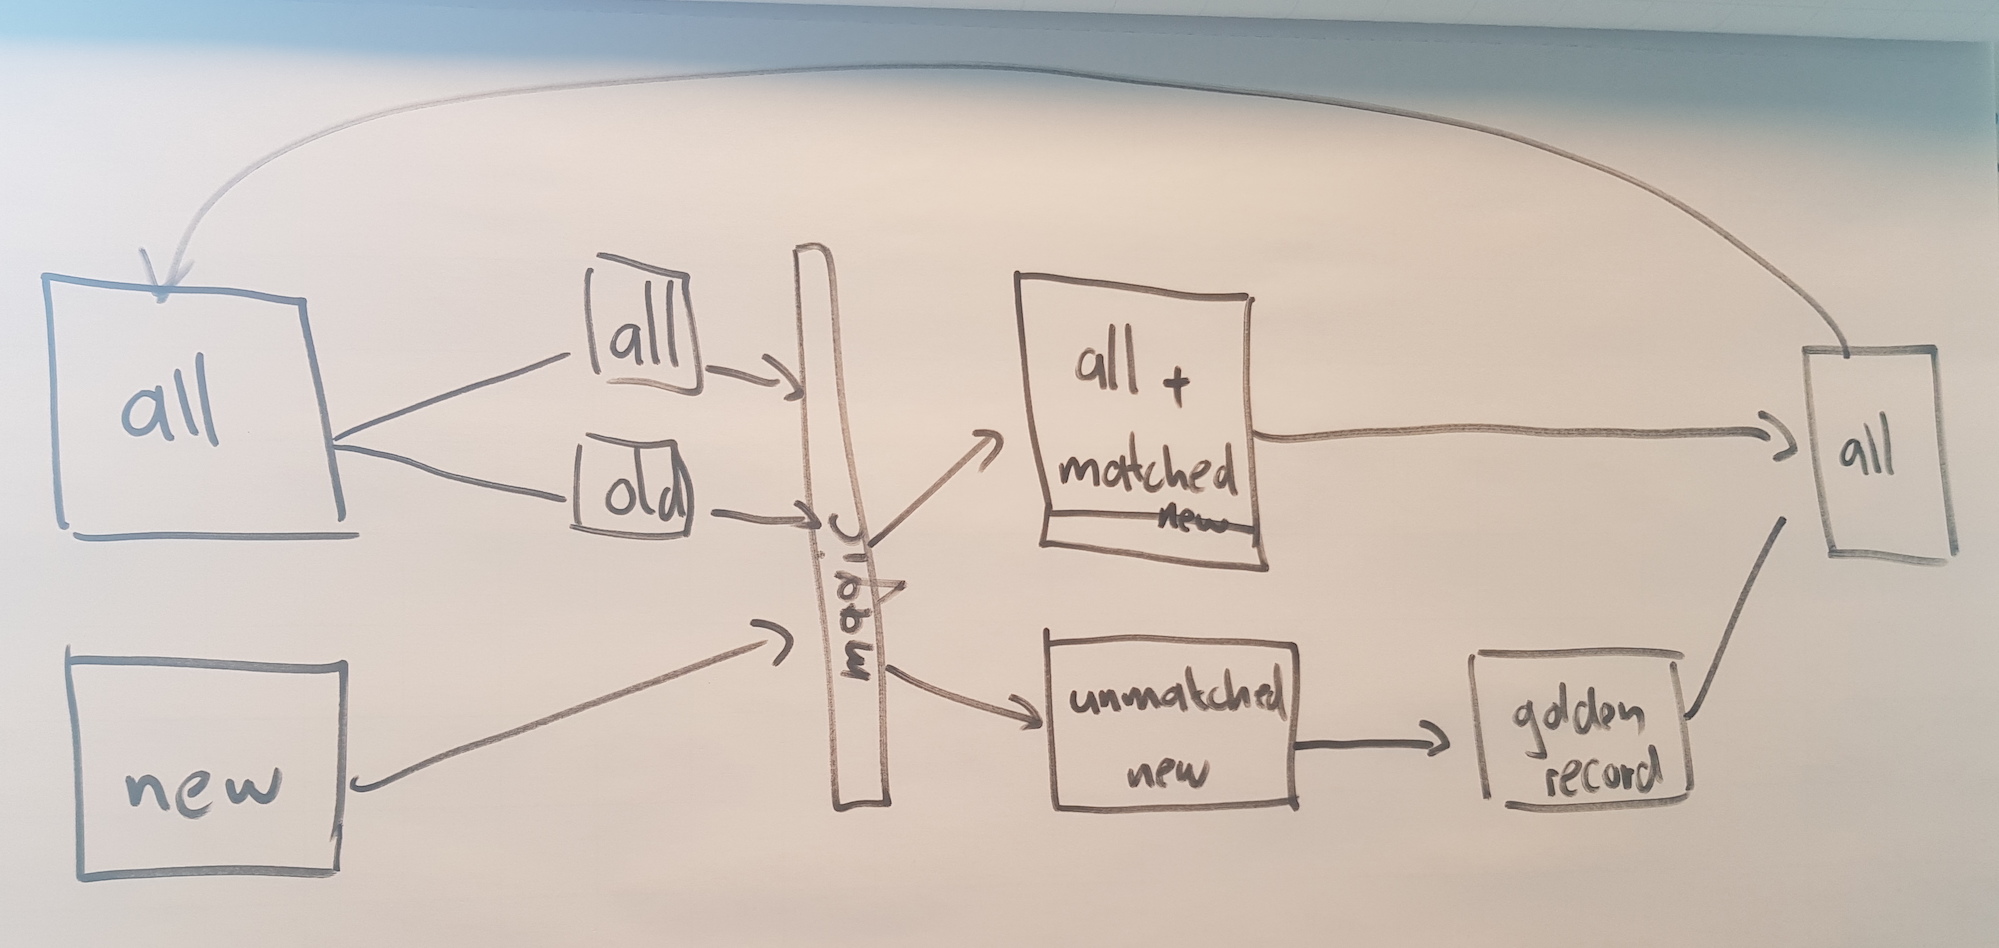 all
all
old
new
match
all +
matched
new
unmatched
new
golden
record
all